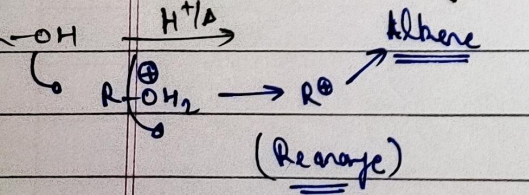 -OH H⁺/Δ Alkene
R-OH₂ ⊕ → R⊕
(Rearrange)